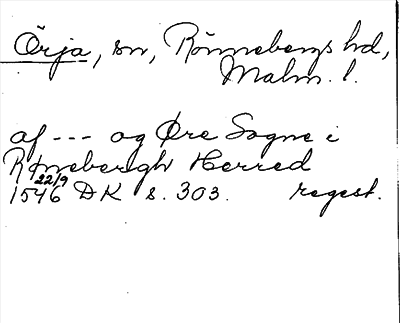 Örja, sn, Rönnebergs hd,
Malm. l.
af --- og Øre Sogne i
Rønebergh Herred
1546 22/9 DK s. 303. regest.